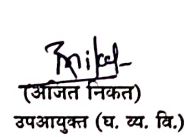 (अजित निकत)
उपआयुक्त (घ. व्य. वि.)